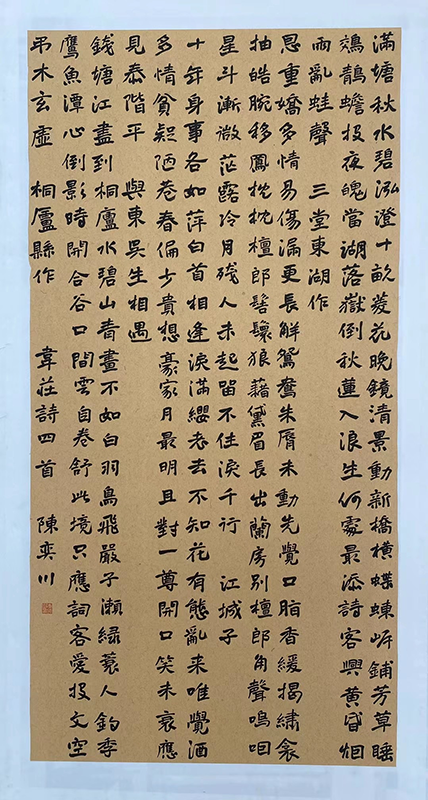 滿塘秋水碧泓澄十畝菱花晚鏡清景動新橋橫螮蝀岸鋪芳草睡
鵁鶄蟾投夜魄當湖落嶽倒秋蓮入浪生何處最添詩客興黃昏烟
雨亂蛙聲 三堂東湖作
恩重嬌多情易傷漏更長解鴛鴦朱脣未動先覺口脂香緩揭繡衾
抽皓腕移鳳枕枕檀郎髻鬟狼藉黛眉長出蘭房別檀郎角聲嗚咽
星斗漸微茫露冷月殘人未起留不住淚千行 江城子
十年身事各如萍白首相逢淚滿纓老去不知花有態亂來唯覺酒
多情貧疑陋巷春偏少貴想豪家月最明且對一尊開口笑未衰應
見泰階平 與東吳生相遇
錢塘江盡到桐廬水碧山青畫不如白羽鳥飛嚴子瀨綠蓑人釣季
鷹魚潭心倒影時開合谷口閒雲自卷舒此境只應詞客愛投文空
弔木玄虛 桐廬縣作 韋莊詩四首 陳奕川